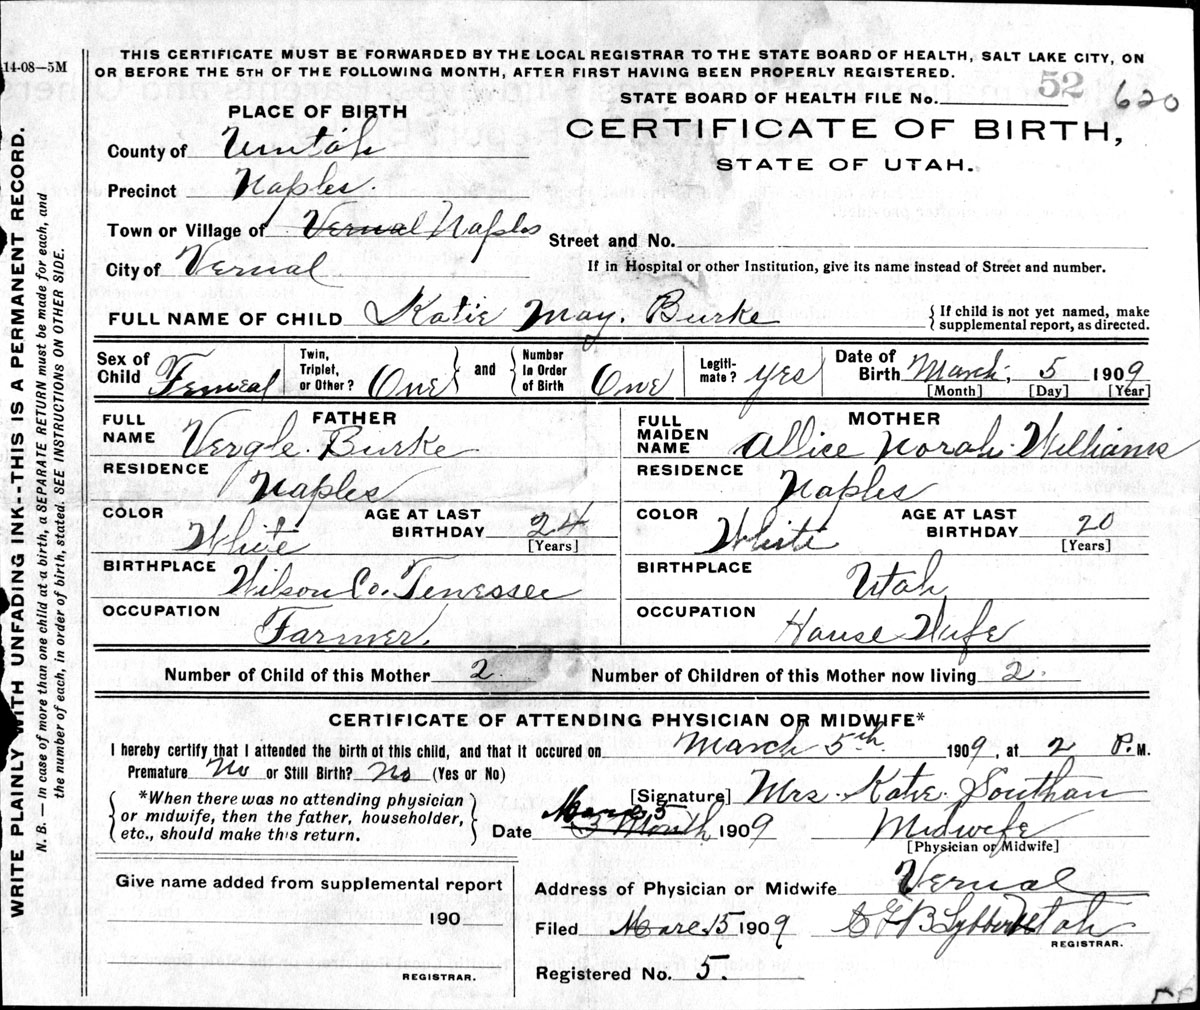 THIS CERTIFICATE MUST BE FORWARDED BY THE LOCAL REGISTRAR TO THE STATE BOARD OF HEALTH, SALT LAKE CITY, ON
OR BEFORE THE 5TH OF THE FOLLOWING MONTH, AFTER FIRST HAVING BEEN PROPERLY REGISTERED.
14-08—5M
WRITE PLAINLY WITH UNFADING INK--THIS IS A PERMANENT RECORD.
N. B.—In case of more than one child at a birth, a SEPARATE RETURN must be made for each, and
the number of each, in order of birth, stated. SEE INSTRUCTIONS ON OTHER SIDE.
STATE BOARD OF HEALTH FILE No. 52 620
PLACE OF BIRTH
CERTIFICATE OF BIRTH,
STATE OF UTAH.
County of Uintah
Precinct Naples.
Town or Village of Vernal Naples
Street and No.
City of Vernal
If in Hospital or other Institution, give its name instead of Street and number.
FULL NAME OF CHILD Katie May. Burke
If child is not yet named, make
supplemental report, as directed.
Sex of Child Femeal
Twin, Triplet, or Other? One
and
Number In Order of Birth One
Legiti-mate? yes
Date of Birth March, 5 1909
[Month] [Day] [Year]
FATHER
FULL NAME Vergle. Burke
RESIDENCE Naples
COLOR White
AGE AT LAST BIRTHDAY 24
[Years]
BIRTHPLACE Wilson Co. Tenessee
OCCUPATION Farmer.
MOTHER
FULL MAIDEN NAME Allice Norah. Williams
RESIDENCE Naples
COLOR White
AGE AT LAST BIRTHDAY 20
[Years]
BIRTHPLACE Utah
OCCUPATION House Wife
Number of Child of this Mother 2
Number of Children of this Mother now living 2.
CERTIFICATE OF ATTENDING PHYSICIAN OR MIDWIFE*
I hereby certify that I attended the birth of this child, and that it occured on March 5th. 1909, at 2 P. M.
Premature No or Still Birth? No (Yes or No)
*When there was no attending physician
or midwife, then the father, householder,
etc., should make this return.
[Signature] Mrs. Katie. Southan
Date 5 3 Month 1909
Midwife
[Physician or Midwife]
Give name added from supplemental report
190
REGISTRAR.
Address of Physician or Midwife Vernal
Utah
Filed Mar. 15 1909
REGISTRAR.
Registered No. 5.